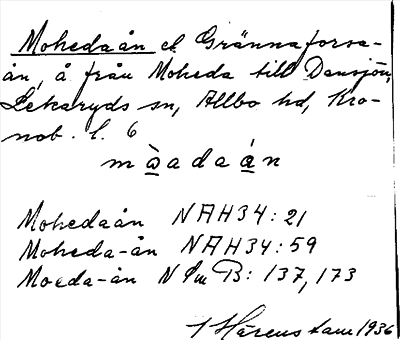 Mohedaån el. Grännaforsa-
ån, å från Moheda till Dansjön,
Lekaryds sn, Allbo hd, Kro-
nob. l. 6
mòadaán
Mohedaån NAH34:21
Moheda-ån NAH34:59
Moeda-ån N Sm B: 137, 173
1936